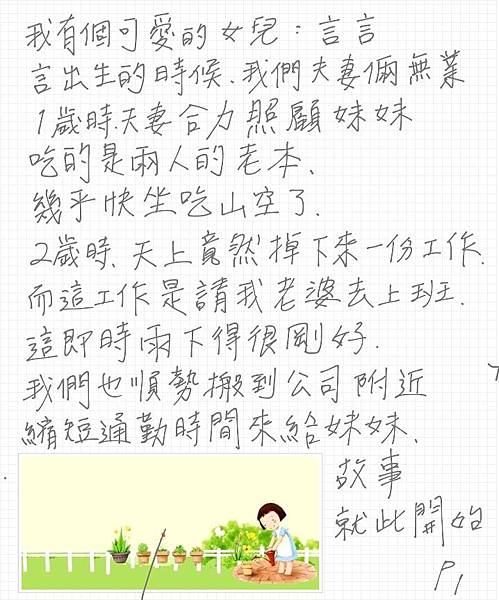 我有個可愛的女兒：言言
言出生的時候、我們夫妻倆無業
1歲時、夫妻合力照顧妹妹
吃的是兩人的老本、
幾乎快坐吃山空了.
2歲時、天上竟然掉下來一份工作.
而這工作是請我老婆去上班.
這即時雨下得很剛好.
我們也順勢搬到公司附近
縮短通勤時間來給妹妹、
故事
就此開始
P1